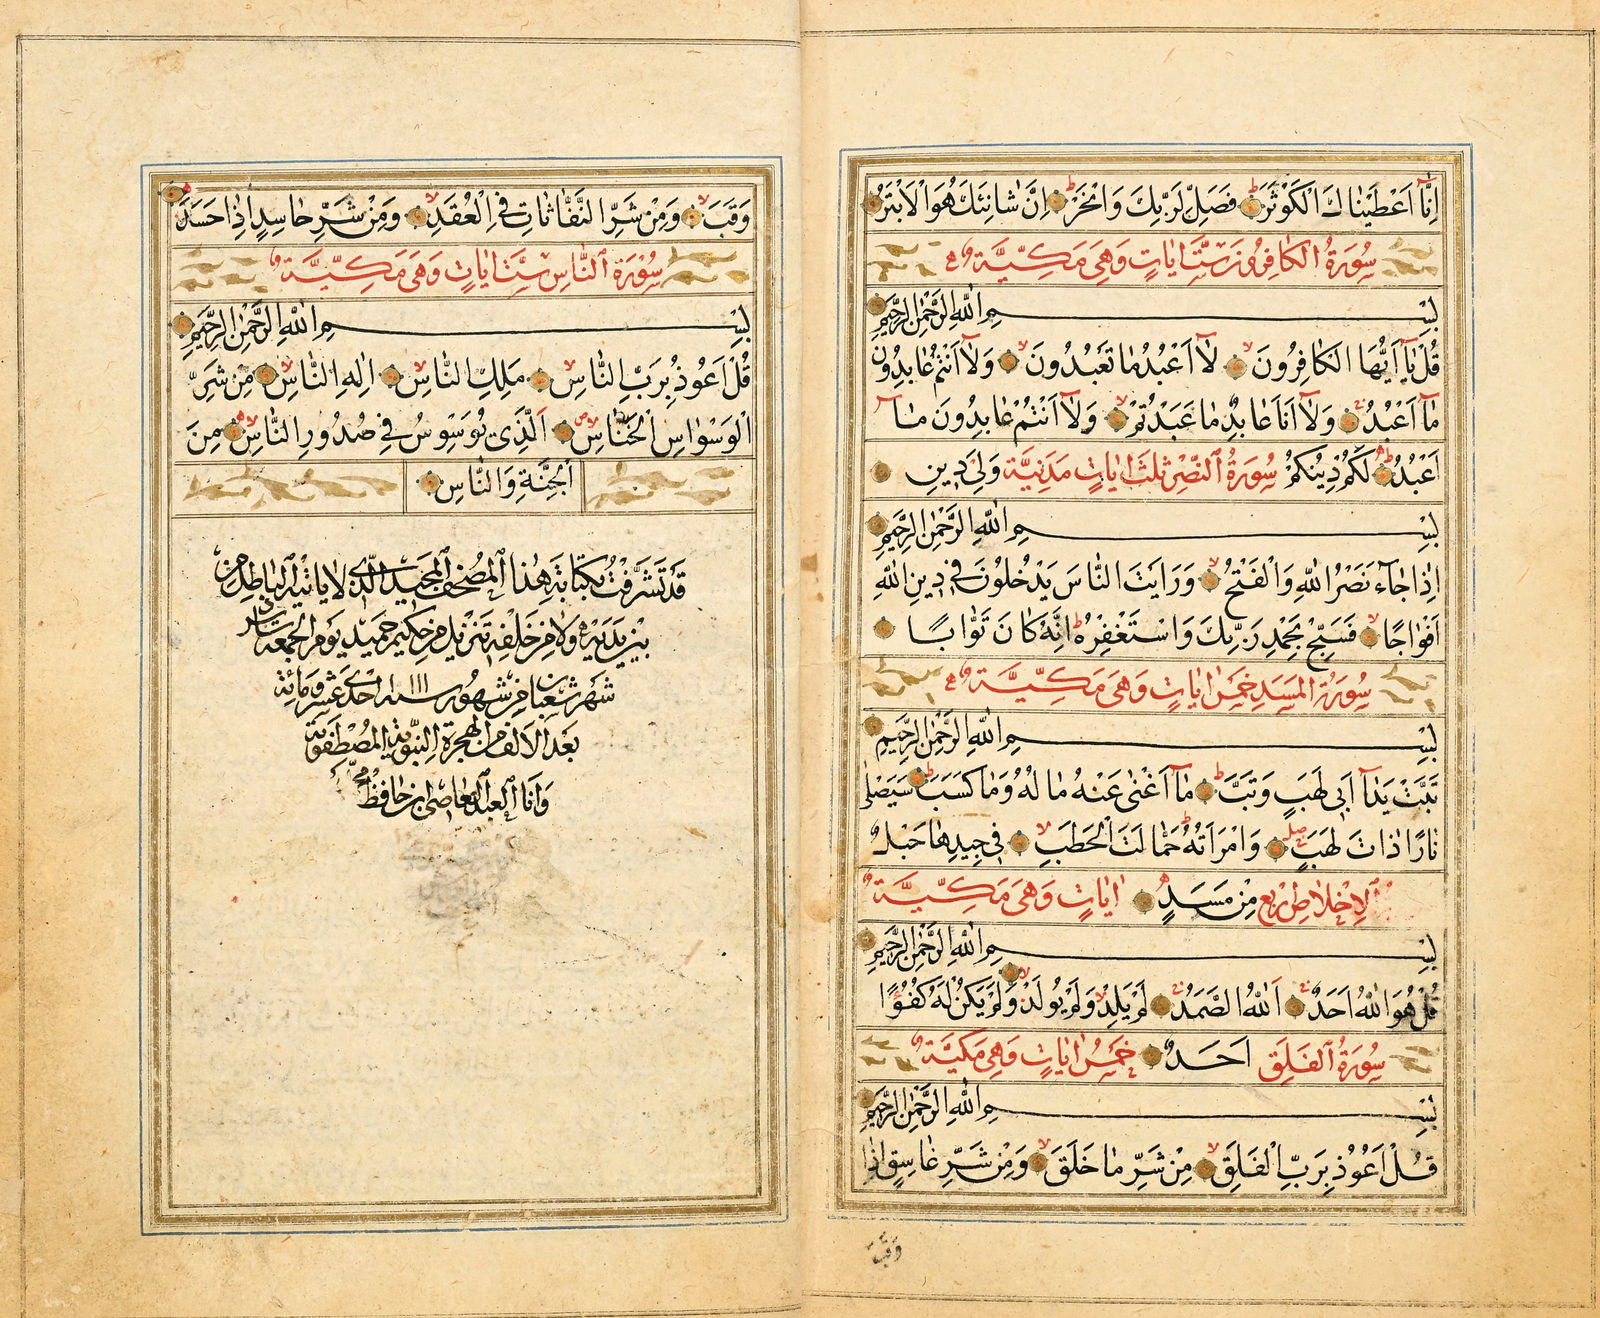 اِنَّآ اَعْطَيْنَاكَ الْكَوْثَرَ فَصَلِّ لِرَبِّكَ وَانْحَرْ اِنَّ شَانِئَكَ هُوَ الْاَبْتَرُ
سُورَةُ الكَافِرُونَ سِتُّ اٰيَاتٍ وَهِيَ مَكِّيَّة
بِسْمِ اللّٰهِ الرَّحْمٰنِ الرَّحِيمِ
قُلْ يَآ اَيُّهَا الكَافِرُونَ لَآ اَعْبُدُ مَا تَعْبُدُونَ وَلَآ اَنْتُمْ عَابِدُونَ
مَآ اَعْبُدُ وَلَآ اَنَا عَابِدٌ مَا عَبَدْتُمْ وَلَآ اَنْتُمْ عَابِدُونَ مَآ
اَعْبُدُ لَكُمْ دِينُكُمْ سُورَةُ النَّصْرِ ثَلٰث اٰيَاتٍ مَدَنِيَّة وَلِيَ دِينِ
بِسْمِ اللّٰهِ الرَّحْمٰنِ الرَّحِيمِ
اِذَا جَآءَ نَصْرُ اللّٰهِ وَالْفَتْحُ وَرَاَيْتَ النَّاسَ يَدْخُلُونَ فِي دِينِ اللّٰهِ
اَفْوَاجًا فَسَبِّحْ بِحَمْدِ رَبِّكَ وَاسْتَغْفِرْهُ اِنَّهُ كَانَ تَوَّابًا
سُورَةُ المَسَدِ خَمْسُ اٰيَاتٍ وَهِيَ مَكِّيَّة
بِسْمِ اللّٰهِ الرَّحْمٰنِ الرَّحِيمِ
تَبَّتْ يَدَآ اَبِي لَهَبٍ وَتَبَّ مَآ اَغْنٰى عَنْهُ مَالُهُ وَمَا كَسَبَ سَيَصْلٰى
نَارًا ذَاتَ لَهَبٍ وَامْرَاَتُهُ حَمَّالَتَ الْحَطَبِ فِي جِيدِهَا حَبْلٌ
الاِخْلَاصِ اَرْبَع مِنْ مَسَدٍ اٰيَاتٍ وَهِيَ مَكِّيَّة
بِسْمِ اللّٰهِ الرَّحْمٰنِ الرَّحِيمِ
قُلْ هُوَ اللّٰهُ اَحَدٌ اَللّٰهُ الصَّمَدُ لَمْ يَلِدْ وَلَمْ يُولَدْ وَلَمْ يَكُنْ لَهُ كُفُوًا
سُورَةُ الفَلَقِ اَحَدٌ خَمْسُ اٰيَاتٍ وَهِيَ مَكِيَّة
بِسْمِ اللّٰهِ الرَّحْمٰنِ الرَّحِيمِ
قُلْ اَعُوْذُ بِرَبِّ الْفَلَقِ مِنْ شَرِّ مَا خَلَقَ وَمِنْ شَرِّ غَاسِقٍ اِذَا
وَقَبَ
وَقَبَ وَمِنْ شَرِّ النَّفَّاثَاتِ فِي الْعُقَدِ وَمِنْ شَرِّ حَاسِدٍ اِذَا حَسَدَ
سُوْرَةُ النَّاسِ سِتُّ اٰيَاتٍ وَهِيَ مَكِّيَّة
بِسْمِ اللّٰهِ الرَّحْمٰنِ الرَّحِيمِ
قُلْ اَعُوذُ بِرَبِّ النَّاسِ مَلِكِ النَّاسِ اِلٰهِ النَّاسِ مِنْ شَرِّ
الْوَسْوَاسِ الْخَنَّاسِ اَلَّذِي يُوَسْوِسُ فِي صُدُورِ النَّاسِ مِنَ
الْجِنَّةِ وَالنَّاسِ
قَدْ تَشَرَّفْتُ بِكِتَابَةِ هٰذَا المُصْحَفِ المَجِيدِ الَّذِي لَا يَاْتِيهِ البَاطِلُ مِنْ
بَيْنِ يَدَيْهِ وَلَا مِنْ خَلْفِهِ تَنْزِيلٌ مِنْ حَكِيمٍ حَمِيدٍ يَوْمَ الجُمُعَة
شَهْرِ شَعْبَانَ مِنْ شُهُورِ سنه ١١١١ اِحْدَى عَشَرَ وَمِائَة
بَعْدَ الاَلْفِ مِنَ الهِجْرَةِ النَّبَوِيَّةِ المُصْطَفَوِيَّة
وَاَنَا العَبْدُ العَاصِي ابْنُ حَافِظ